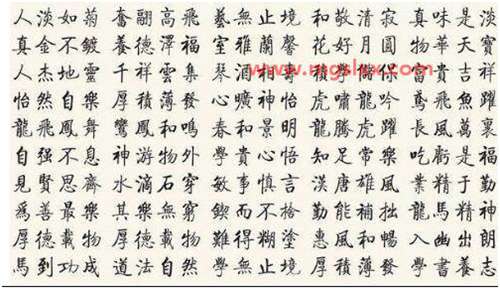 人淡如菊 奮翮高飛 藝無止境 和敬清寂 真味是淡
真金不鍍 養德澤福 室雅蘭馨 花好月圓 物華天寶
人杰地靈 千祥雲集 琴 酒 富貴吉祥
www.mgslxx.com
怡然自樂 厚積薄發 心曠神怡 虎嘯龍吟 鳶飛魚躍
龍飛鳳舞 鸞鳳和鳴 春和景明 龍騰虎躍 長風萬裏
自强不息 神游物外 學貴心悟 知足常樂 吃虧是福
見賢思齊 水滴石穿 敏事慎言 漢唐雄風 業精于勤
爲善最樂 其樂無窮 鍥而不捨 勤能補拙 龍馬精神
厚德載物 厚德載物 難得糊塗 惠風和暢 入幽出朗
馬到功成 道法自然 學無止境 厚積薄發 學書養志